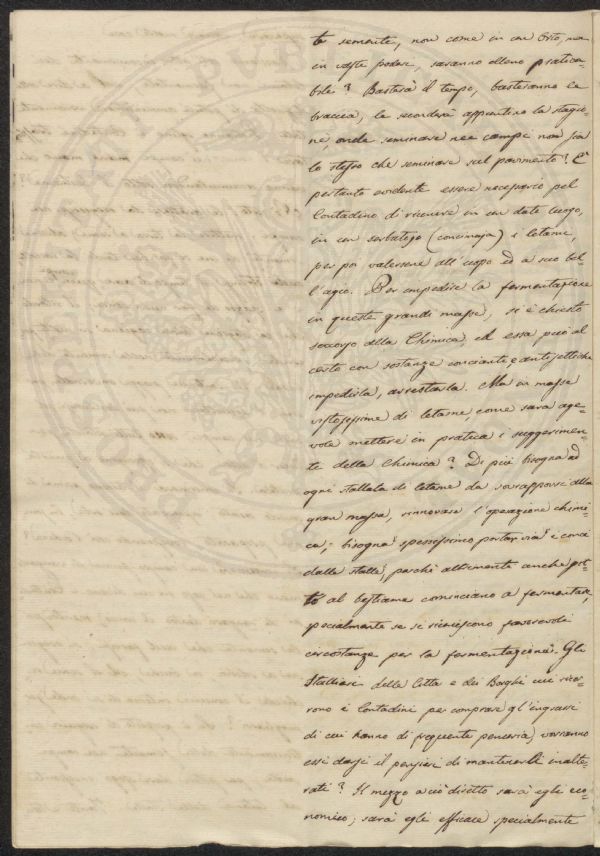 te semente, non come in un Orto, ma
in vaste podere, saranno elleno pratica-
bili? Basterà il tempo, basteranno le
braccia, le seconderà appuntino la stagio-
ne, onde seminare nei campi non sia
lo stesso che seminare sul pavimento? È
pertanto evidente essere necessario pel
Contadino di riunire in un dato luogo,
in un serbatojo (concimaja) i letami,
per poi valersene all'uopo ed a suo bel-
l'agio. Per impedire la fermentazione
in queste grandi masse, si è chiesto
soccorso della Chimica, ed essa può al
certo con sostanze concianti, e antisettiche
impedirla, arrestarla. Ma in masse
vistosissime di letame, come sarà age-
vole mettere in pratica i suggerimen-
ti della Chimica? Di più bisogna ad
ogni stallata di letame da sovrapporsi alla
gran massa, rinnovare l'operazione chimi-
ca; bisogna spessissimo portar via i conci
dalle stalle, perchè altrimenti anche sot-
to al bestiame cominciano a fermentare,
specialmente se si riuniscono favorevoli
circostanze per la fermentazione. Gli
Stallieri della Città e dei Borghi cui ricor-
rono i Contadini per comprare gl'ingrassi
di cui hanno di frequente penuria, vorranno
essi darsi il pensiere di mantenerli inalte-
rati? Il mezzo a ciò diretto sarà egli eco-
nomico; sarà egli efficace specialmente